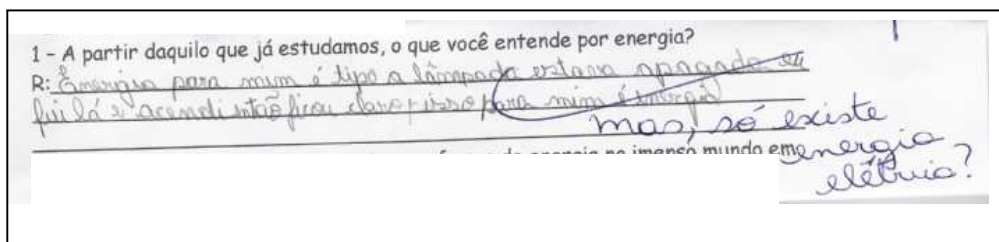 1 - A partir daquilo que já estudamos, o que você entende por energia?
R: Energia para mim é tipo a lâmpada estava apagada eu
fui lá e acendi então ficou claro p isso para mim é energia
mas, só existe
energia no imenso mundo em energia
elétrica?